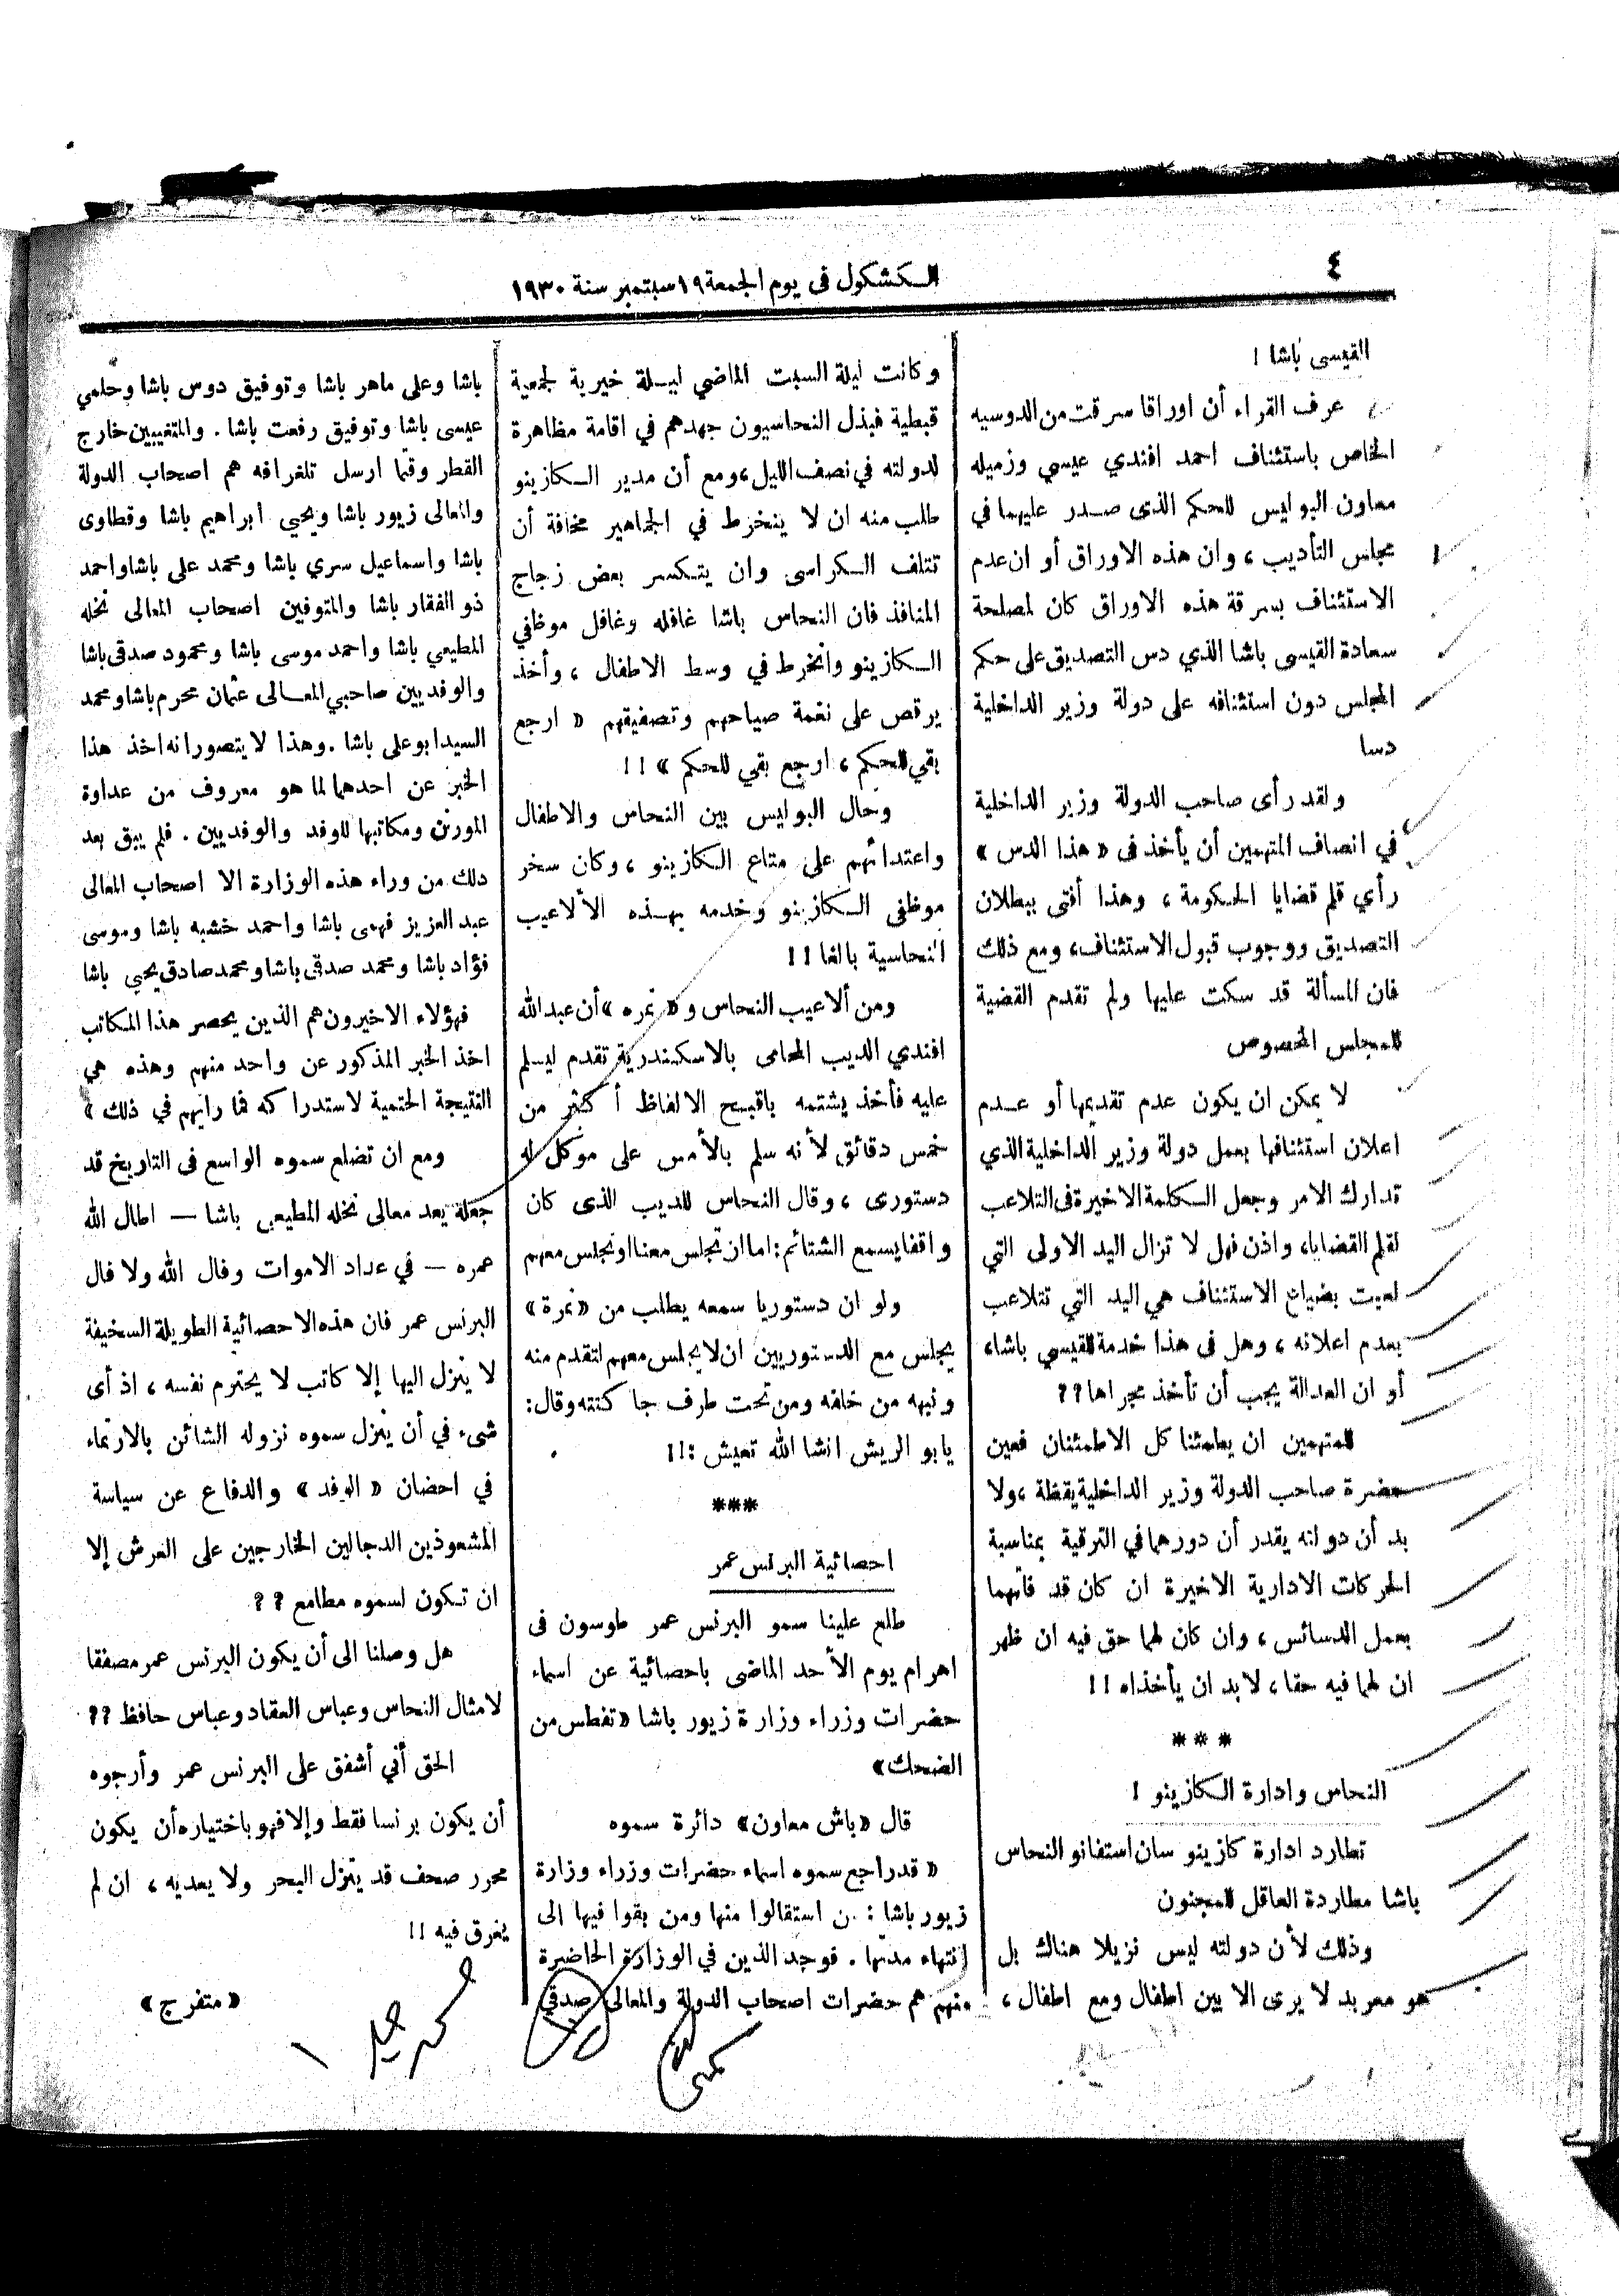 ٤
الكشكول فى يوم الجمعة ١٩ سبتمبر سنة ١٩٣٠
القيسى باشا !
عرف القراء أن اوراقا سرقت من الدوسيه
الخاص باستئناف احمد افندي عيسى وزميله
معاون البوليس للحكم الذى صدر عليهما في
مجلس التأديب ، وان هذه الاوراق أو ان عدم
الاستئناف بسرقة هذه الاوراق كان لمصلحة
سعادة القيسى باشا الذي دس التصديق على حكم
المجلس دون استئنافه على دولة وزير الداخلية
دسا
ولقد رأى صاحب الدولة وزير الداخلية
في انصاف المتهمين أن يأخذ فى « هذا الدس »
رأي قلم قضايا الحكومة ، وهذا أفتى ببطلان
التصديق ووجوب قبول الاستئناف، ومع ذلك
فان المسألة قد سكت عليها ولم تقدم القضية
للمجلس المخصوص
لا يمكن ان يكون عدم تقديمها أو عدم
اعلان استئنافها بعمل دولة وزير الداخلية الذي
تدارك الامر وجعل الكلمة الاخيرة فى التلاعب
لقلم القضايا، واذن فهل لا تزال اليد الاولى التي
لعبت بضياع الاستئناف هي اليد التي تتلاعب
بعدم اعلانه ، وهل فى هذا خدمة للقيسي باشا،
أو ان العدالة يجب أن تأخذ مجراها ؟؟
للمتهمين ان يطمئنا كل الاطمئنان فعين
حضرة صاحب الدولة وزير الداخلية يقظة ، ولا
بد أن دولته يقدر أن دورهما في الترقية بمناسبة
الحركات الادارية الاخيرة ان كان قد فاتهما
بعمل الدسائس ، وان كان لهما حق فيه ان ظهر
ان لهما فيه حقا ، لابد ان يأخذاه !!
* * *
النحاس وادارة الكازينو !
تطارد ادارة كازينو سان استفانو النحاس
باشا مطاردة العاقل للمجنون
وذلك لأن دولته ليس نزيلا هناك بل
هو معربد لا يرى الا بين اطفال ومع اطفال ،
وكانت ليلة السبت الماضي ليلة خيرية لجمعية
قبطية فبذل النحاسيون جهدهم في اقامة مظاهرة
لدولته في نصف الليل ، ومع أن مدير الكازينو
طلب منه ان لا ينخرط في الجماهير مخافة أن
تتلف الكراسى وان يتكسر بعض زجاج
المنافذ فان النحاس باشا غافله وغافل موظفي
الكازينو وانخرط في وسط الاطفال ، وأخذ
يرقص على نغمة صياحهم وتصفيقهم « ارجع
بقي للحكم ، ارجع بقي للحكم » !!
وحال البوليس بين النحاس والاطفال
واعتدائهم على متاع الكازينو ، وكان سخر
موظفى الكازينو وخدمه بهذه الألاعيب
النحاسية بالغا !!
ومن ألاعيب النحاس و« نمره » أن عبدالله
افندي الديب المحامى بالاسكندرية تقدم ليسلم
عليه فأخذ يشتمه باقبح الالفاظ أكثر من
خمس دقائق لأنه سلم بالأمس على موكل له
دستورى ، وقال النحاس للديب الذى كان
واقفا يسمع الشتائم : اما ان تجلس معنا او تجلس معهم
ولو ان دستوريا سمعه يطلب من « نمرة »
يجلس مع الدستوريين ان لا يجلس معهم لتقدم منه
ونبهه من خلفه ومن تحت طرف جاكتته وقال :
يابو الريش انشا الله تعيش !!!
***
احصائية البرنس عمر
طلع علينا سمو البرنس عمر طوسون فى
اهرام يوم الأحد الماضى باحصائية عن اسماء
حضرات وزراء وزارة زيور باشا « تفطس من
الضحك»
قال « باش معاون» دائرة سموه
« قد راجع سموه اسماء حضرات وزراء وزارة
زيور باشا : من استقالوا منها ومن بقوا فيها الى
انتهاء مدتها . فوجد الذين في الوزارة الحاضرة
منهم هم حضرات اصحاب الدولة والمعالى صدقي
باشا وعلى ماهر باشا وتوفيق دوس باشا وحلمي
عيسى باشا وتوفيق رفعت باشا . والمتغيبين خارج
القطر وقتما ارسل تلغرافه هم اصحاب الدولة
والمعالى زيور باشا ويحيى ابراهيم باشا وقطاوى
باشا واسماعيل سري باشا ومحمد على باشا واحمد
ذو الفقار باشا والمتوفين اصحاب المعالى نخله
المطيعي باشا واحمد موسى باشا ومحمود صدقى باشا
والوفديين صاحبي المعالى عثمان محرم باشا ومحمد
السيد ابو على باشا . وهذا لا يتصور انه اخذ هذا
الخبر عن احدهما لما هو معروف من عداوة
المورنن ومكاتبها للوفد والوفديين . فلم يبق بعد
ذلك من وراء هذه الوزارة الا اصحاب المعالى
عبد العزيز فهمى باشا واحمد خشبه باشا وموسى
فؤاد باشا ومحمد صدقى باشا ومحمد صادق يحيى باشا
فهؤلاء الاخيرون هم الذين يحصر هذا المكاتب
اخذ الخبر المذكور عن واحد منهم وهذه هي
النتيجة الحتمية لاستدراكه فما رأيهم في ذلك »
ومع ان تضلع سموه الواسع فى التاريخ قد
جعله يعد معالى نخله المطيعى باشا — اطال الله
عمره — في عداد الاموات وفال الله ولا فال
البرنس عمر فان هذه الاحصائية الطويلة السخيفة
لا ينزل اليها إلا كاتب لا يحترم نفسه ، اذ أى
شىء في أن ينزل سموه نزوله الشائن بالارتماء
في احضان « الوفد » والدفاع عن سياسة
المشعوذين الدجالين الخارجين على العرش إلا
ان تكون لسموه مطامع ؟؟
هل وصلنا الى أن يكون البرنس عمر مصفقا
لامثال النحاس وعباس العقاد وعباس حافظ ؟؟
الحق أني أشفق على البرنس عمر وأرجوه
أن يكون برنسا فقط وإلا فهو باختياره أن يكون
محرر صحف قد ينزل البحر ولا يعديه ، ان لم
يغرق فيه !!
« متفرج »